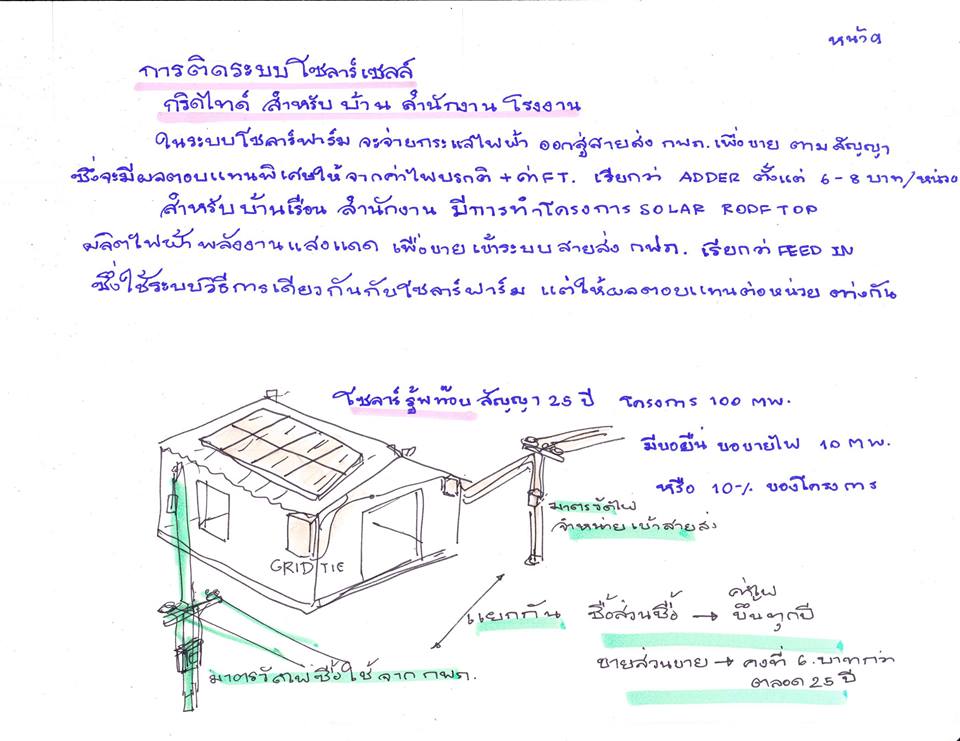 หน้า 9
การติดระบบโซลาร์เซลล์
กริดไทด์ สำหรับ บ้าน สำนักงาน โรงงาน
ในระบบโซลาร์ฟาร์ม จะจ่ายกระแสไฟฟ้า ออกสู่สายส่ง กฟภ. เพื่อขาย ตามสัญญา
ซึ่งจะมีผลตอบแทนพิเศษให้ จากค่าไฟปรกติ + ค่าFT. เรียกว่า ADDER ตั้งแต่ 6-8 บาท/หน่วย
สำหรับบ้านเรือน สำนักงาน มีการทำโครงการ SOLAR ROOFTOP
ผลิตไฟฟ้าพลังงานแสงแดด เพื่อขาย เข้าระบบสายส่ง กฟภ. เรียกว่า FEED IN
ซึ่งใช้ระบบวิธีการเดียวกันกับโซลาร์ฟาร์ม แต่ให้ผลตอบแทนต่อหน่วย ต่างกัน
โซลาร์รู้ฟท๊อบ สัญญา 25 ปี โครงการ 100 MW.
มีขอยื่น ขอขายไฟ 10 MW.
หรือ 10% ของโครงการ
มาตรวัดไฟ
จำหน่ายเข้าสายส่ง
GRID TIE
แยกกัน ซื้อส่วนซื้อ → ค่าไฟ ขึ้นทุกปี
ขายส่วนขาย → คงที่ 6. บาทกว่า
ตลอด 25 ปี
มาตรวัดไฟซื้อใช้จาก กฟภ.